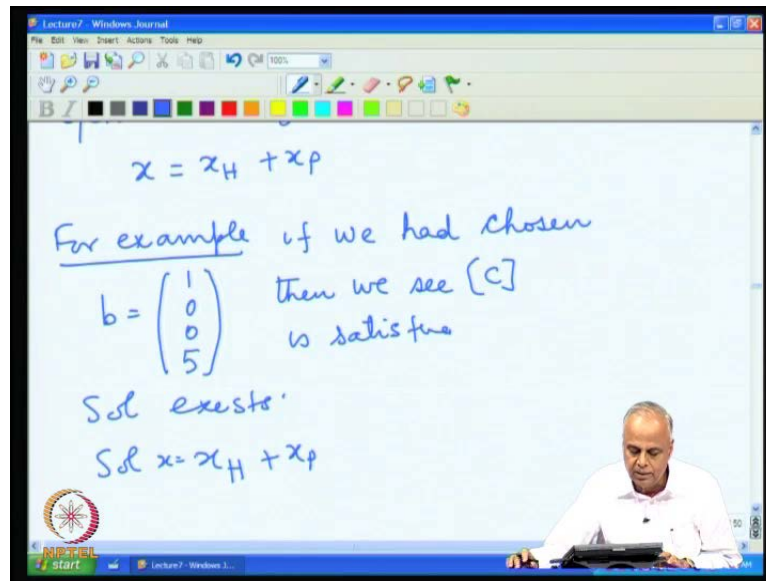 Lecture7 - Windows Journal
File Edit View Insert Actions Tools Help
100%
B I
x = x_H + x_P
For example if we had chosen
b = (1 0 0 5) then we see [C]
is satisfie
Sol exests.
Sol x = x_H + x_P
NPTEL
start Lecture7 - Windows J...